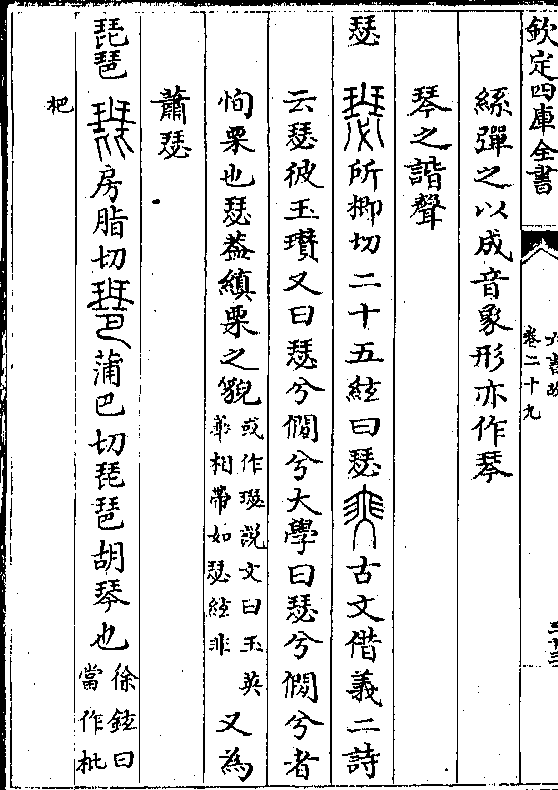 欽定四庫全書
六書故
卷二十九
絲彈之以成音象形亦作琴
琴之諧聲
瑟 所櫛切二十五絃曰瑟 古文借義二詩
云瑟彼玉瓚又曰瑟兮僩兮大學曰瑟兮僩兮者
恂栗也瑟葢縝栗之貌或作璱說文曰玉英華相帶如瑟絃非又為
蕭瑟
琵琶 房脂切 蒲巴切琵琶胡琴也徐鉉曰當作枇
杷